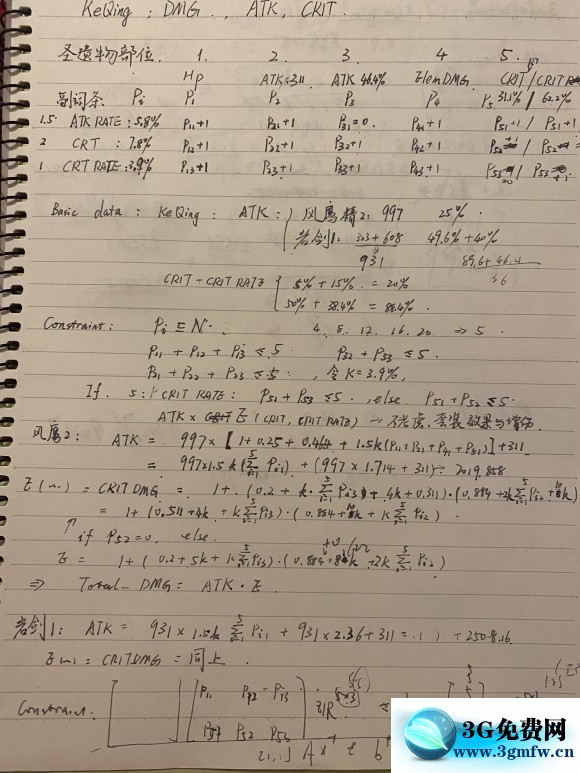 KeQing : DMG . , ATK , CRIT .
圣遗物部位 . 1. 2. 3. 4 5.
HP ATK:311 ATK 46.4% ElemDMG. CRIT / CRITR
副词条 Pi P1 P2 P3 P4 P5 31.1% / 62.2%
1.5 ATK RATE : 5.8% P11+1 P21+1 P31=0. P41+1 P51+1 / P51+1
2 CRT : 7.8% P12+1 P32+1 P42+1
1 CRT RATE : 3.9% P13+1 P33+1 P43+1
Basic data : KeQing : ATK : 风鹰剑2: 997 25% .
岩剑1: 303+608 49.6%+40%
931 89.6+46.4
CRIT - CRIT RATE 5% + 15% = 20%
50% + 38.4% = 88.4% .
Constraint : Pi ∈ N . 4. 8. 12. 16. 20 ⇒ 5 .
P11 + P12 + P13 ≤ 5 . P32 + P33 ≤ 5 .
P21 + P22 + P23 ≤ 5 . , 令 K = 3.9% ,
If 5 : CRIT RATE : P51 + P53 ≤ 5 . else P51 + P52 ≤ 5 .
ATK × E (CRIT, CRIT RATE) → 不考虑 套装效果与
风鹰2 : ATK = 997 × [ 1 + 0.25 + 0.464 + 1.5k (P11 + P21 + P41 + P51) ] + 311
= 997×1.5 k (5Σi=1 Pi1) + (997 × 1.714 + 311) = 2019.858
E(~) = CRIT DMG = 1 + (0.2 + k · 5Σi=1 Pi3 + 4k + 0.311) · (0.884 + 2k 5Σi=1 Pi2 + k)
= 1 + (0.511 + 4k + k 5Σi=1 Pi3) · (0.884 + k + k 5Σi=1 Pi2) .
↑ if P52 = 0 , else .
E = 1 + ( 0.2 + 5k + k 5Σi=1 Pi3 ) · ( 0.884 + 8k + 2k 5Σi=1 Pi2 )
⇒ Total_DMG = ATK · E .
岩剑1 : ATK = 931 × 1.5k 5Σi=1 Pi1 + 931 × 2.36 + 311 = ( ) + 2508.16
E(~) = CRIT DMG = 同上 .
Constraint : P11 P12 - P13
P51 P52 P53
3G免费网
www.3gmfw.cn